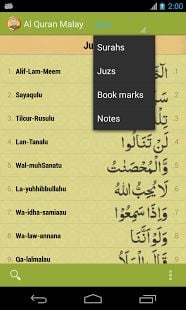 2:00
Al Quran Malay
Juzs
Ju
Surahs
Juzs
Book marks
Notes
1. Alif-Lam-Meem
2. Sayaqulu سَيَقُولُ
3. Tilcur-Rusulu
4. Lan-Tanalu لَنْ تَنَالُوا
5. Wal-muhSanatu وَالْمُحْصَنٰتُ
6. La-yuhhibbullahu لَا يُحِبُّ اللّٰهُ
7. Wa-idha-samiaau وَاِذَا سَمِعُوْا
8. Wa-law-annana وَلَوْ اَنَّنَا
9. Qa-lalmalau